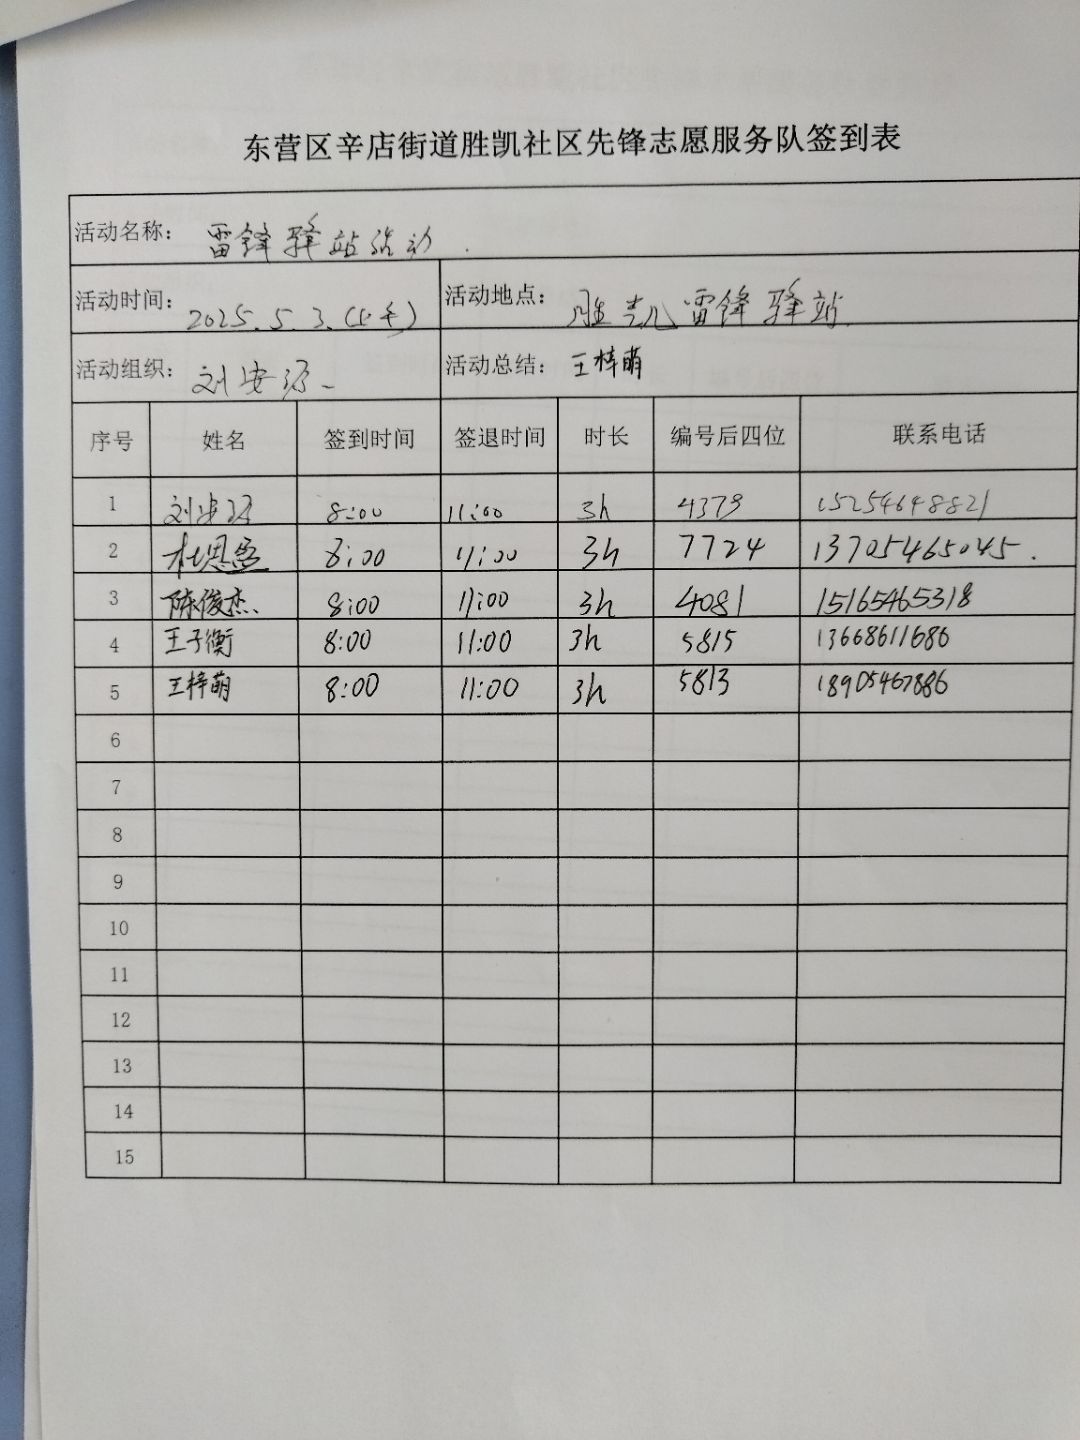 东营区辛店街道胜凯社区先锋志愿服务队签到表
活动名称: 雷锋驿站活动.
活动时间: 2025.5.3.(上午) 活动地点: 胜凯雷锋驿站.
活动组织: 刘安 活动总结: 王梓萌
序号 姓名 签到时间 签退时间 时长 编号后四位 联系电话
1 刘安 8:00 11:00 3h 4379 15254648821
2 杜恩 8:00 11:00 3h 7724 13705465045.
3 陈俊杰. 8:00 11:00 3h 4081 15165465318
4 王子衡 8:00 11:00 3h 5815 13668611686
5 王梓萌 8:00 11:00 3h 5813 18905467886
6
7
8
9
10
11
12
13
14
15